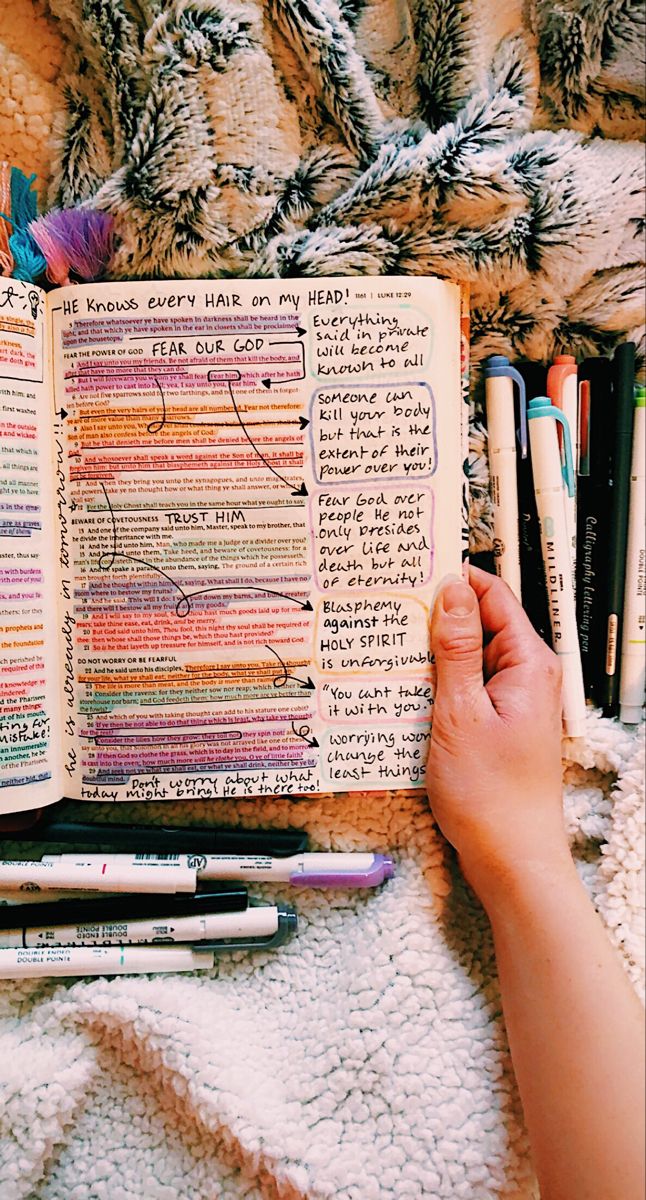 HE KNOWS EVERY HAIR ON MY HEAD!
1161 | LUKE 12:29
3 Therefore whatsoever ye have spoken in darkness shall be heard in the
light; and that which ye have spoken in the ear in closets shall be proclaimed
upon the housetops.
FEAR THE POWER OF GOD FEAR OUR GOD
4 And I say unto you my friends, Be not afraid of them that kill the body, and
after that have no more that they can do.
5 But I will forewarn you whom ye shall fear: Fear him, which after he hath
killed hath power to cast into hell; yea, I say unto you, Fear him.
6 Are not five sparrows sold for two farthings, and not one of them is forgot-
ten before God?
7 But even the very hairs of your head are all numbered. Fear not therefore:
ye are of more value than many sparrows.
8 Also I say unto you,
of man also confess before the angels of God:
9 But he that denieth me before men shall be denied before the angels of
God.
10 And whosoever shall speak a word against the Son of man, it shall be
forgiven him: but unto him that blasphemeth against the Holy Ghost it shall
not be forgiven.
11 And when they bring you unto the synagogues, and unto magistrates,
and powers, take ye no thought how or what thing ye shall answer, or what
shall say:
12 For the Holy Ghost shall teach you in the same hour what ye ought to say.
BEWARE OF COVETOUSNESS TRUST HIM
13 And one of the company said unto him, Master, speak to my brother, that
he divide the inheritance with me.
14 And he said unto him, Man, who made me a judge or a divider over you?
15 And he said unto them, Take heed, and beware of covetousness: for a
man's life consisteth not in the abundance of the things which he possesseth.
16 And he spake a parable unto them, saying, The ground of a certain rich
man brought forth plentifully:
17 And he thought within himself, saying, What shall I do, because I have no
room where to bestow my fruits?
18 And he said, This will I do: I will pull down my barns, and build greater;
and there will I bestow all my fruits and my goods.
19 And I will say to my soul, Soul, thou hast much goods laid up for many
years; take thine ease, eat, drink, and be merry.
20 But God said unto him, Thou fool, this night thy soul shall be required of
thee: then whose shall those things be, which thou hast provided?
21 So is he that layeth up treasure for himself, and is not rich toward God.
DO NOT WORRY OR BE FEARFUL
22 And he said unto his disciples, Therefore I say unto you, Take no thought
for your life, what ye shall eat; neither for the body, what ye shall put on.
23 The life is more than meat, and the body is more than raiment.
24 Consider the ravens: for they neither sow nor reap; which neither have
storehouse nor barn; and God feedeth them: how much more are ye better than
the fowls?
25 And which of you with taking thought can add to his stature one cubit?
26 If ye then be not able to do that thing which is least, why take ye thought
for the rest?
27 Consider the lilies how they grow: they toil not, they spin not; and
say unto you, that Solomon in all his glory was not arrayed like one of these.
28 If then God so clothe the grass, which is to day in the field, and to morrow
is cast into the oven; how much more will he clothe you, O ye of little faith?
29 And seek not ye what ye shall eat, or what ye shall drink, neither be ye of
doubtful mind.
Don't worry about what
today might bring! He is there too!
he is already in tomorrow!!
Everything
said in private
will become
known to all
Someone can
kill your body
but that is the
extent of their
power over you!
Fear God over
people He not
only presides
over life and
death but all
of eternity!
Blasphemy
against the
HOLY SPIRIT
is unforgivable
"You can't take
it with you."
worrying won
change the
least things
MILDLINER
Calligraphy lettering pen
DOUBLE POINTE
AP
DOUBLE ENDED
DOUBLE ENDED
DOUBLE POINTE